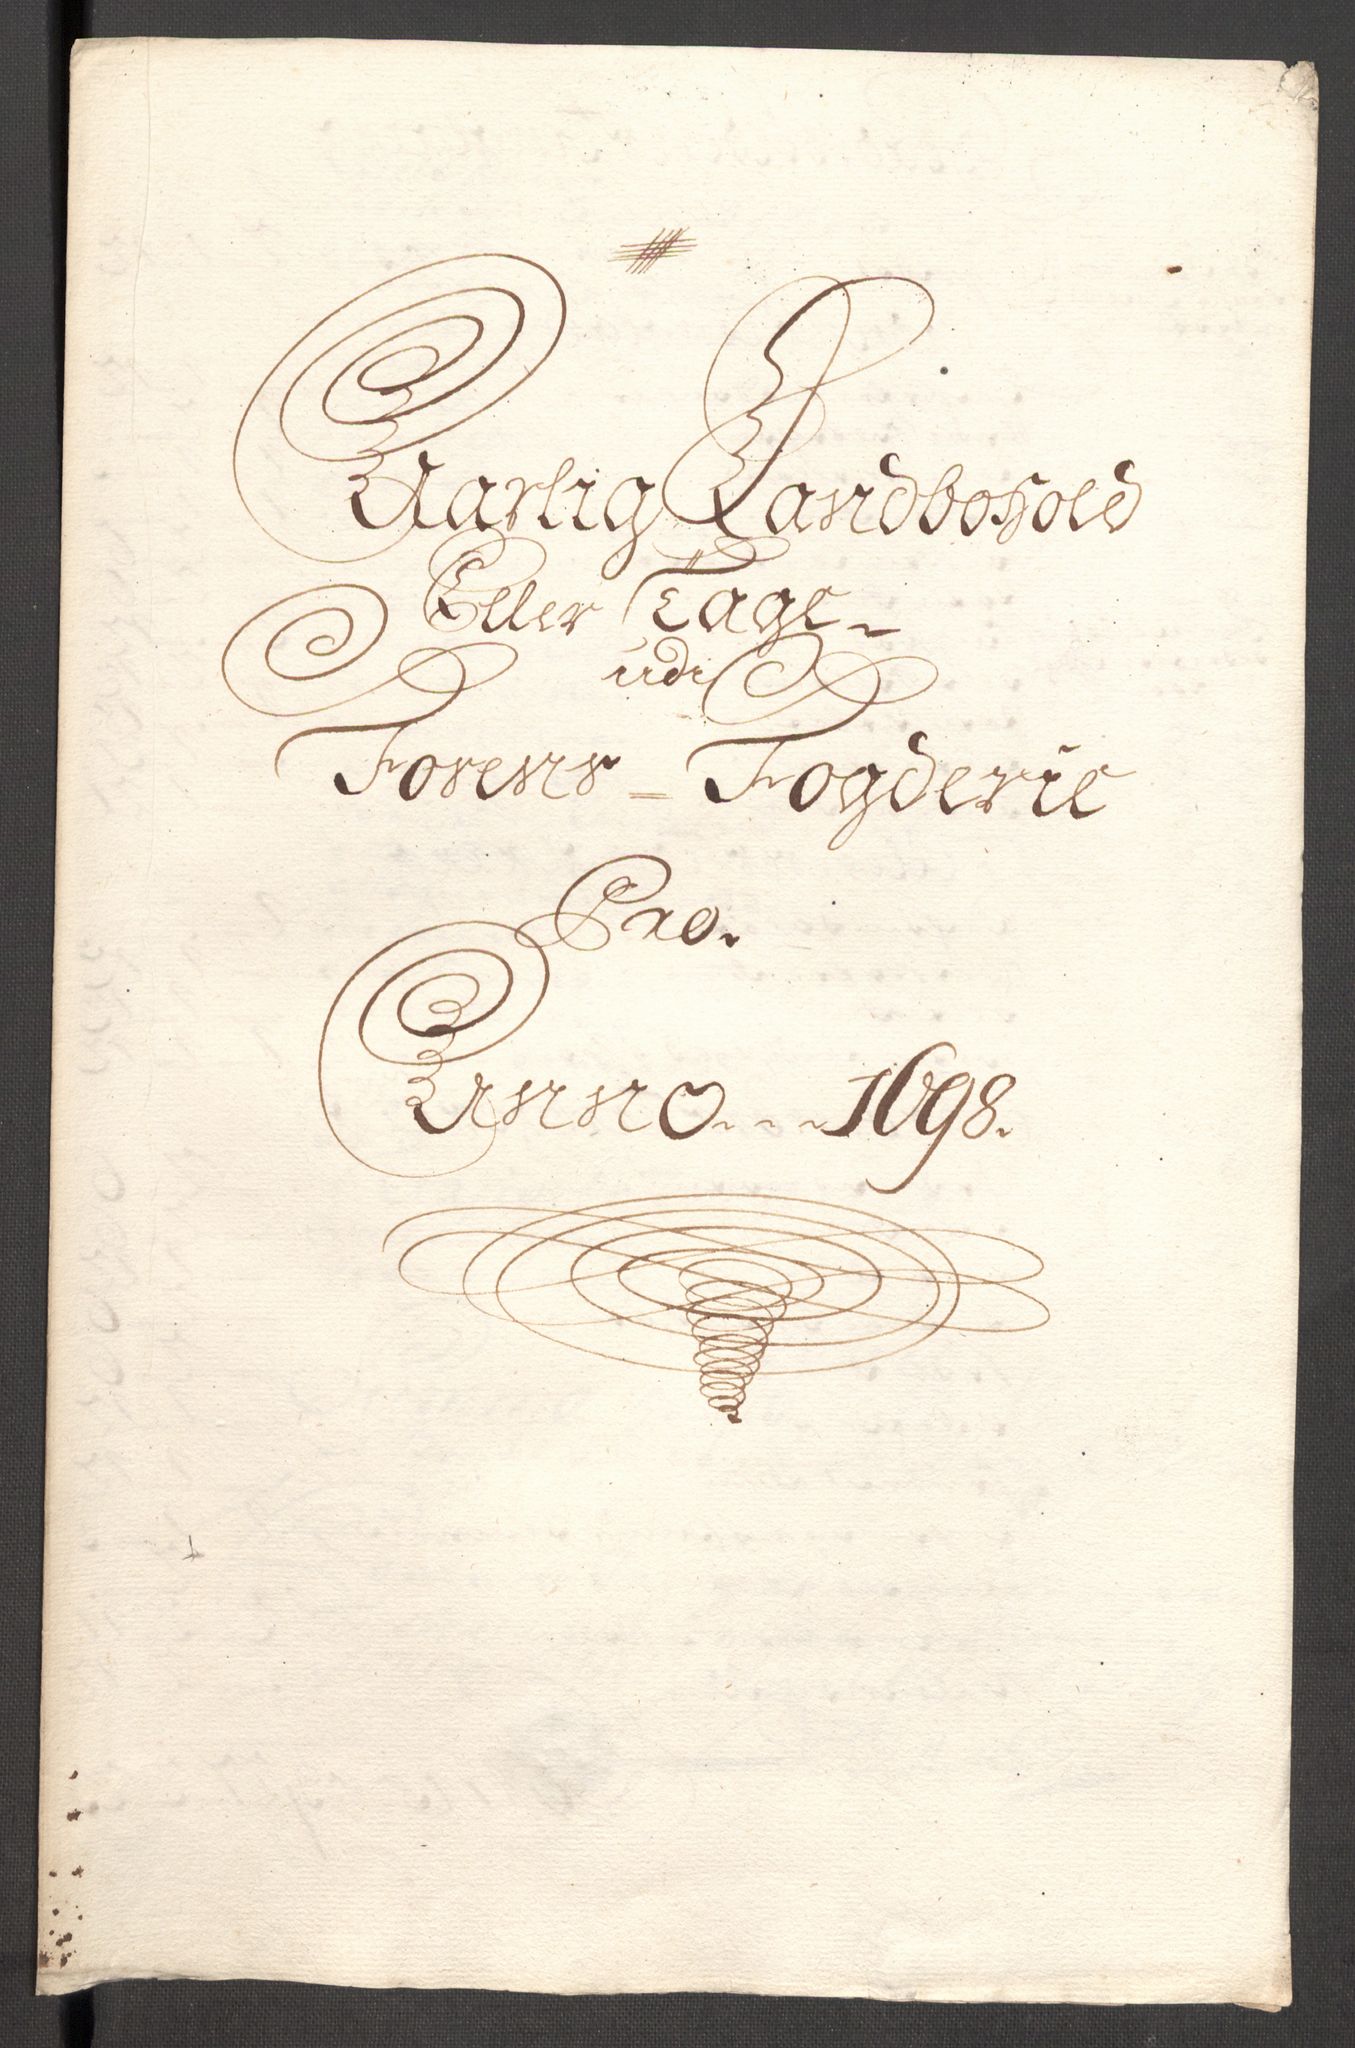 Aarlig Landbohold
Eller Tage
udi
Fosens Fogderie
Pro.
Anno 1698.